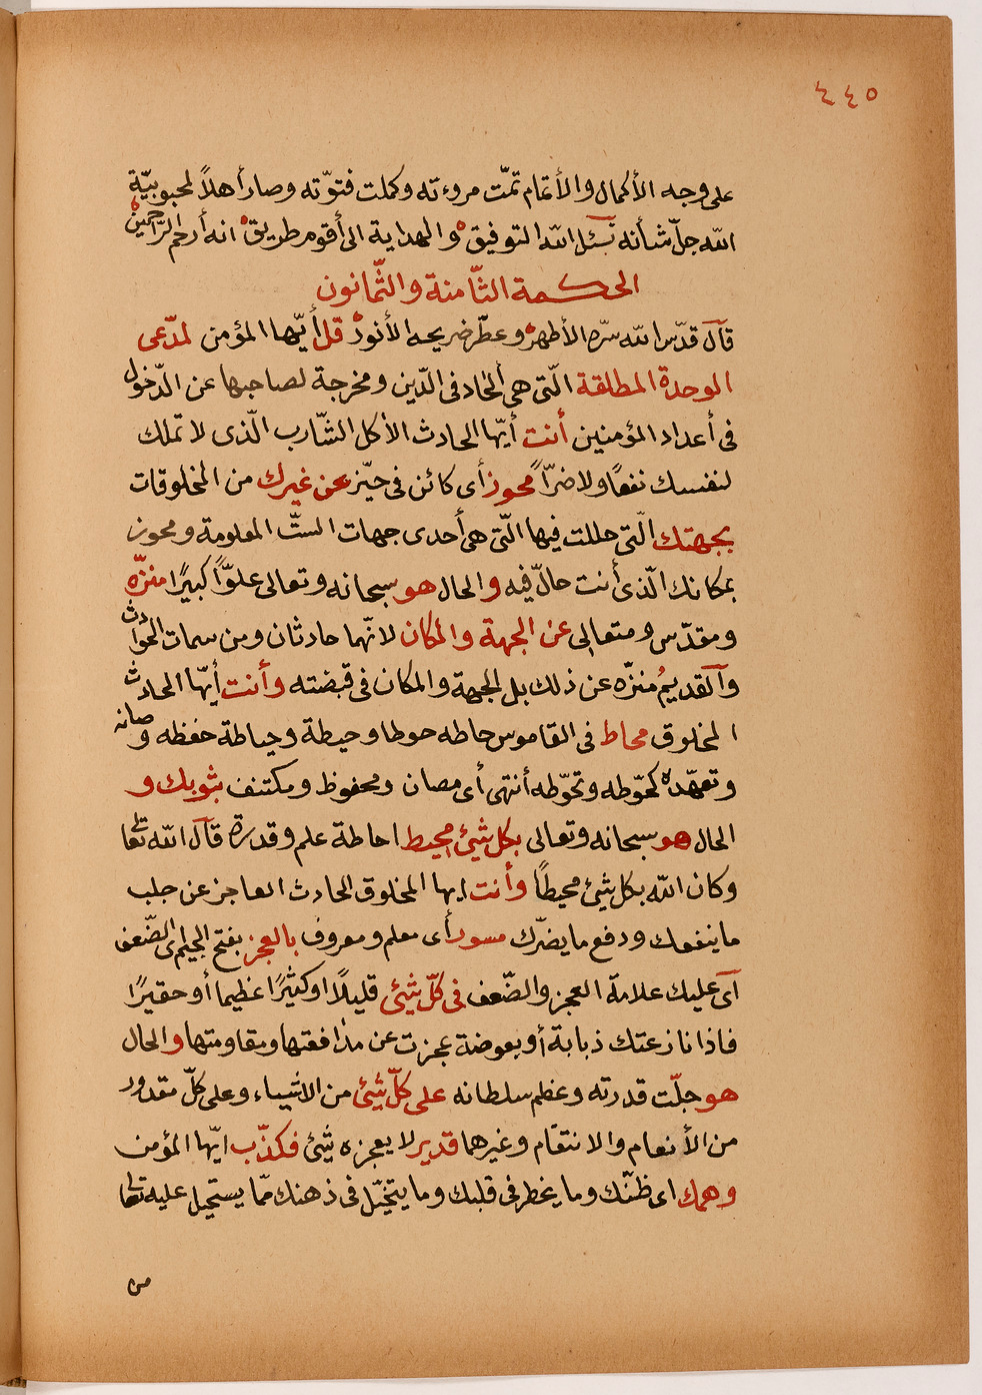 ٤٤٥
على وجه الأكمال والأتمام تمّت مروءته وكملت فتوّته وصار أهلاً لمحبوبيّة
الله جلّ شأنه نسئل الله التوفيق والهداية الى أقوم طريق انه أرحم الرّاحمين
الحكمة الثّامنة والثّمانون
قال قدّس الله سرّه الأطهر وعطّر ضريحه الأنور قل أيّها المؤمن لمدّعى
الوحدة المطلقة الّتى هى ألحاد فى الدّين ومخرجة لصاحبها عن الدّخول
فى أعداد المؤمنين أنت أيّها الحادث الأكل الشّارب الّذى لا تملك
لنفسك نفعًا ولا ضرّاً محوز أى كائن فى حيّز عن غيرك من المخلوقات
بجهتك الّتى حللت فيها الّتى هى أحدى جهات الستّ المعلومة ومحوز
بمكانك الّذى أنت حالّ فيه والحال هو سبحانه وتعالى علوّاً كبيرًا منزّه
ومقدّس ومتعالى عن الجهة والمكان لانّهما حادثان ومن سمات الحوادث
وآلقديم منزّه عن ذلك بل الجهة والمكان فى قبضته وأنت أيّها الحادث
المخلوق محاط فى القاموس حاطه حوطا وحيطة وحياطة حفظه وصانه
وتعهّده كحوّطه وتحوّطه أنتهى أى مصان ومحفوظ ومكتنف بثوبك و
الحال هو سبحانه وتعالى بكل شيئ محيط احاطة علم وقدرة قال الله تعالى
وكان الله بكل شيئ محيطاً وأنت ايها المخلوق الحادث العاجز عن جلب
ما ينفعك ودفع ما يضرّك مسور أى معلم ومعروف بالعجز بفتح الجيم اى الضّعف
آى عليك علامة العجز والضّعف فى كلّ شيئ قليلًا او كثيرًا عظيما أو حقيرًا
فاذا نازعتك ذبابة أو بعوضة عجزت عن مدافعتها ومقاومتها والحال
هو جلّت قدرته وعظم سلطانه على كلّ شيئ من الاشياء وعلى كلّ مقدور
من الأنعام والانتقام وغيرهما قدير لا يعجزه شيئ فكذّب ايّها المؤمن
وهمك اى ظنّك وما يخطر فى قلبك وما يتخيّل فى ذهنك ممّا يستحيل عليه تعالى
من